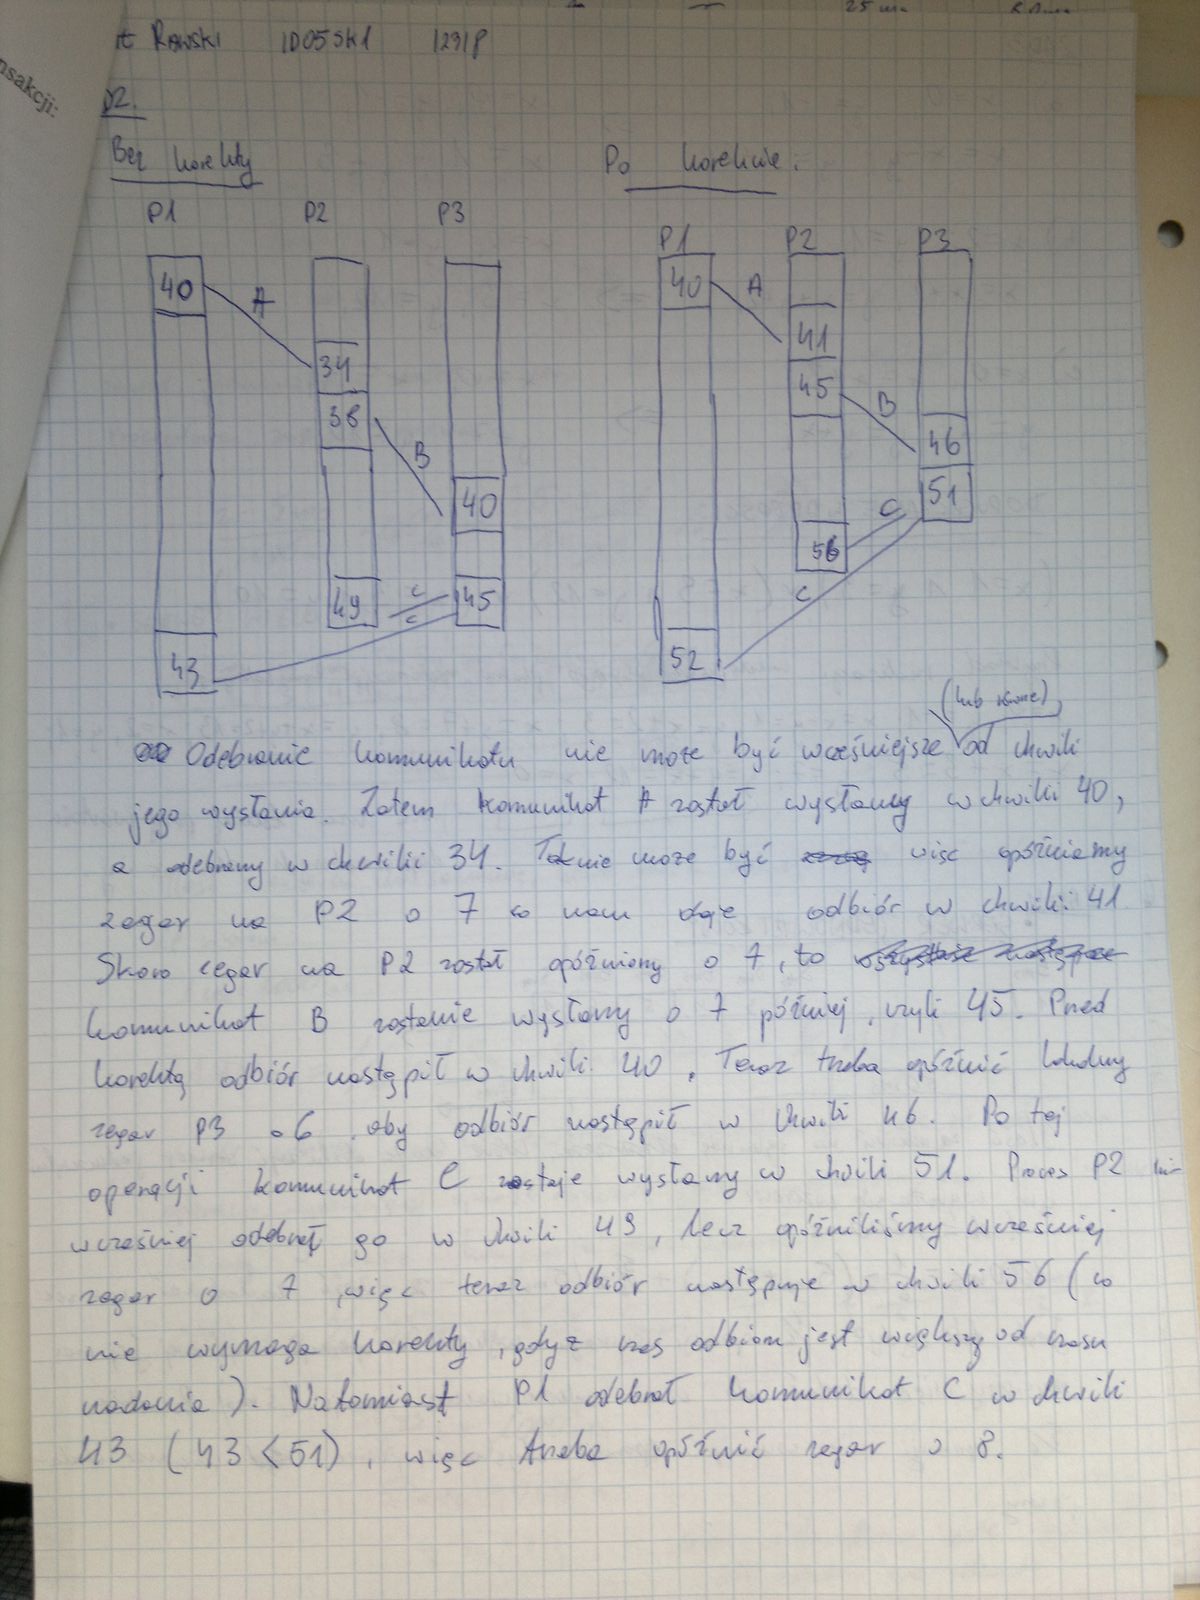 25 min
nsakcji:
Rawski ID05SK1 1291P
02.
Bez korekty
Po korekcie.
P1 P2 P3
40
A
34
38
B
40
49
C
C
45
43
P1 P2 P3
40
A
41
45
B
46
51
C
56
C
52
(lub równe)
Odebranie komunikatu nie może być wcześniejsze od chwili
jego wysłania. Zatem komunikat A został wysłany w chwili 40,
a odebrany w chwili 34. Tak nie może być więc opóźniamy
zegar na P2 o 7 co nam daje odbiór w chwili 41
Skoro zegar na P2 został opóźniony o 7, to
komunikat B zostanie wysłany o 7 później, czyli 45. Przed
korektą odbiór nastąpił w chwili 40, Teraz trzeba opóźnić lokalny
zegar P3 o 6, aby odbiór nastąpił w chwili 46. Po tej
operacji komunikat C zostaje wysłany w chwili 51. Proces P2
wcześniej odebrał go w chwili 49, lecz opóźniliśmy wcześniej
zegar o 7, więc teraz odbiór następuje w chwili 56 (co
nie wymaga korekty, gdyż czas odbioru jest większy od czasu
nadania). Natomiast P1 odebrał komunikat C w chwili
43 (43 < 51), więc trzeba opóźnić zegar o 8.